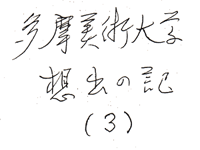 多摩美術大学
想出の記
(3)